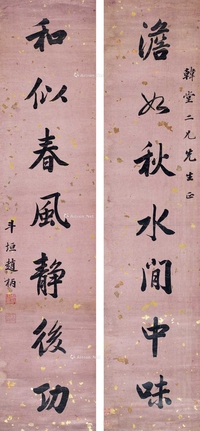 韓堂二兄先生正
澹如秋水閒中味
和似春風静後功
斗垣趙柄